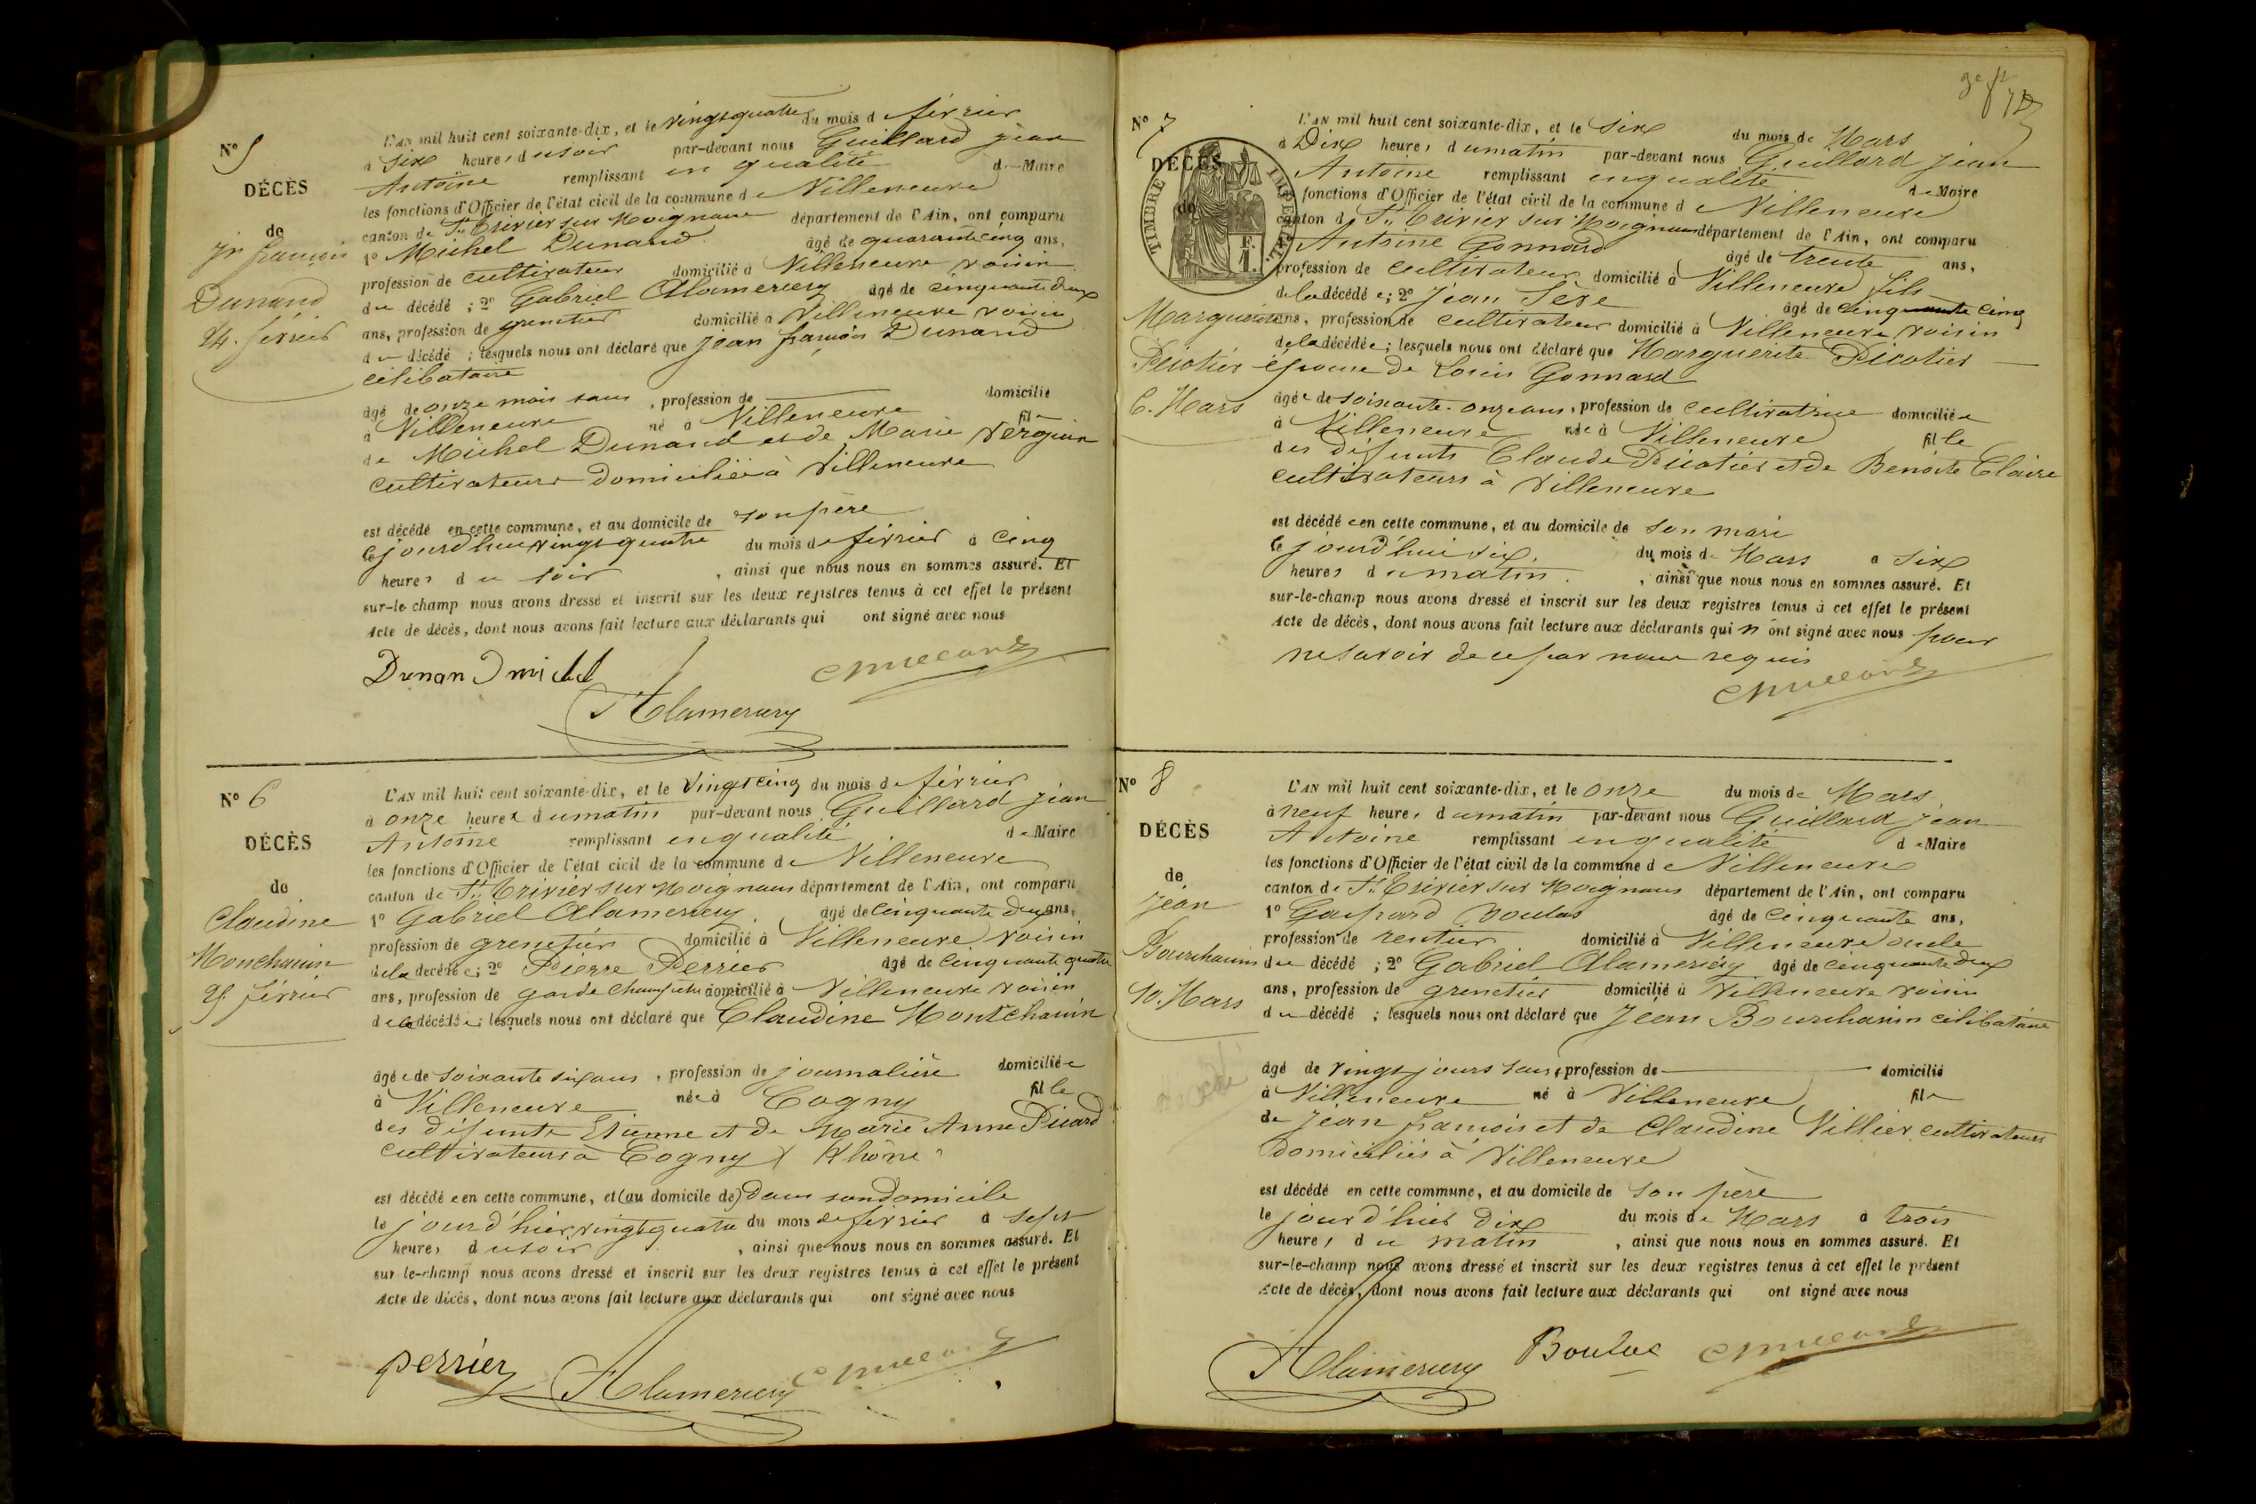 N° 5
DÉCÈS
de
Jn françois
Dunand
24. février
L'AN mil huit cent soixante-dix, et le vingtquatre du mois de février
à six heures du soir par-devant nous Guillard jean
Antoine remplissant en qualité de Maire
les fonctions d'Officier de l'état civil de la commune de Villeneuve
canton de St Trivier sur Moignans département de l'Ain, ont comparu
1° Michel Dunand âgé de quarante cinq ans,
profession de cultivateur domicilié à Villeneuve voisin
du décédé ; 2° Gabriel Alamercery âgé de cinquante deux
ans, profession de grenetier domicilié à Villeneuve voisin
du décédé ; lesquels nous ont déclaré que jean françois Dunand
célibataire
âgé de onze mois sans , profession de domicilié
à Villeneuve né à Villeneuve fils
de Michel Dunand et de Marie Verguin
cultivateurs domiciliés à Villeneuve
est décédé en cette commune, et au domicile de son père
le jourd'hui vingt quatre du mois de février à cinq
heures du soir , ainsi que nous nous en sommes assuré. Et
sur-le-champ nous avons dressé et inscrit sur les deux registres tenus à cet effet le présent
Acte de décès, dont nous avons fait lecture aux déclarants qui ont signé avec nous
Dunand michel
Alamercery
N° 6
DÉCÈS
de
Claudine
Monchanin
25 février
L'AN mil huit cent soixante-dix, et le vingt cinq du mois de février
à onze heures du matin par-devant nous Guillard jean
Antoine remplissant en qualité de Maire
les fonctions d'Officier de l'état civil de la commune de Villeneuve
canton de St Trivier sur Moignans département de l'Ain, ont comparu
1° Gabriel Alamercery âgé de cinquante deux ans,
profession de grenetier domicilié à Villeneuve voisin
de la décédée ; 2° Pierre Perrier âgé de cinquante quatre
ans, profession de garde champêtre domicilié à Villeneuve voisin
de la décédée ; lesquels nous ont déclaré que Claudine Montchanin
âgée de soixante six ans , profession de journalière domiciliée
à Villeneuve née à Cogny fille
des défunts Etienne et de Marie Anne Picard
cultivateurs à Cogny (Rhône)
est décédée en cette commune, et (au domicile de) dans son domicile
le jour d'hier vingt quatre du mois de février à sept
heures du soir , ainsi que nous nous en sommes assuré. Et
sur-le-champ nous avons dressé et inscrit sur les deux registres tenus à cet effet le présent
Acte de décès, dont nous avons fait lecture aux déclarants qui ont signé avec nous
perrier Alamercery
N° 7
DÉCÈS
de
TIMBRE IMPÉRIAL
1 F.
Marguerite
Picotier
6. Mars
L'AN mil huit cent soixante-dix, et le six du mois de Mars
à Dix heures du matin par-devant nous Guillard jean
Antoine remplissant en qualité de Maire
fonctions d'Officier de l'état civil de la commune de Villeneuve
canton de St Trivier sur Moignans département de l'Ain, ont comparu
Antoine Gonnard âgé de trente ans,
profession de cultivateur domicilié à Villeneuve fils
de la décédée ; 2° Jean Sève âgé de cinquante cinq
ans, profession de cultivateur domicilié à Villeneuve voisin
de la décédée ; lesquels nous ont déclaré que Marguerite Picotier
épouse de Louis Gonnard
âgée de soixante-onze ans, profession de cultivatrice domiciliée
à Villeneuve née à Villeneuve fille
des défunts Claude Picotier et de Benoîte Claire
cultivateurs à Villeneuve
est décédée en cette commune, et au domicile de son mari
le jourd'hui six du mois de Mars à six
heures du matin , ainsi que nous nous en sommes assuré. Et
sur-le-champ nous avons dressé et inscrit sur les deux registres tenus à cet effet le présent
Acte de décès, dont nous avons fait lecture aux déclarants qui n'ont signé avec nous pour
ne savoir de ce par nous requis
N° 8
DÉCÈS
de
Jean
Bourchanin
10. Mars
L'AN mil huit cent soixante-dix, et le onze du mois de Mars
à neuf heures du matin par-devant nous Guillard jean
Antoine remplissant en qualité de Maire
les fonctions d'Officier de l'état civil de la commune de Villeneuve
canton de St Trivier sur Moignans département de l'Ain, ont comparu
1° Gaspard Boulas âgé de cinquante ans,
profession de rentier domicilié à Villeneuve oncle
du décédé ; 2° Gabriel Alamercery âgé de cinquante deux
ans, profession de grenetier domicilié à Villeneuve voisin
du décédé ; lesquels nous ont déclaré que Jean Bourchanin célibataire
âgé de vingt jours sans profession de domicilié
à Villeneuve né à Villeneuve fils
de Jean françois et de Claudine Villier cultivateurs
domiciliés à Villeneuve
est décédé en cette commune, et au domicile de son père
le jour d'hier dix du mois de Mars à trois
heures du matin , ainsi que nous nous en sommes assuré. Et
sur-le-champ nous avons dressé et inscrit sur les deux registres tenus à cet effet le présent
Acte de décès, dont nous avons fait lecture aux déclarants qui ont signé avec nous
Alamercery Boulas